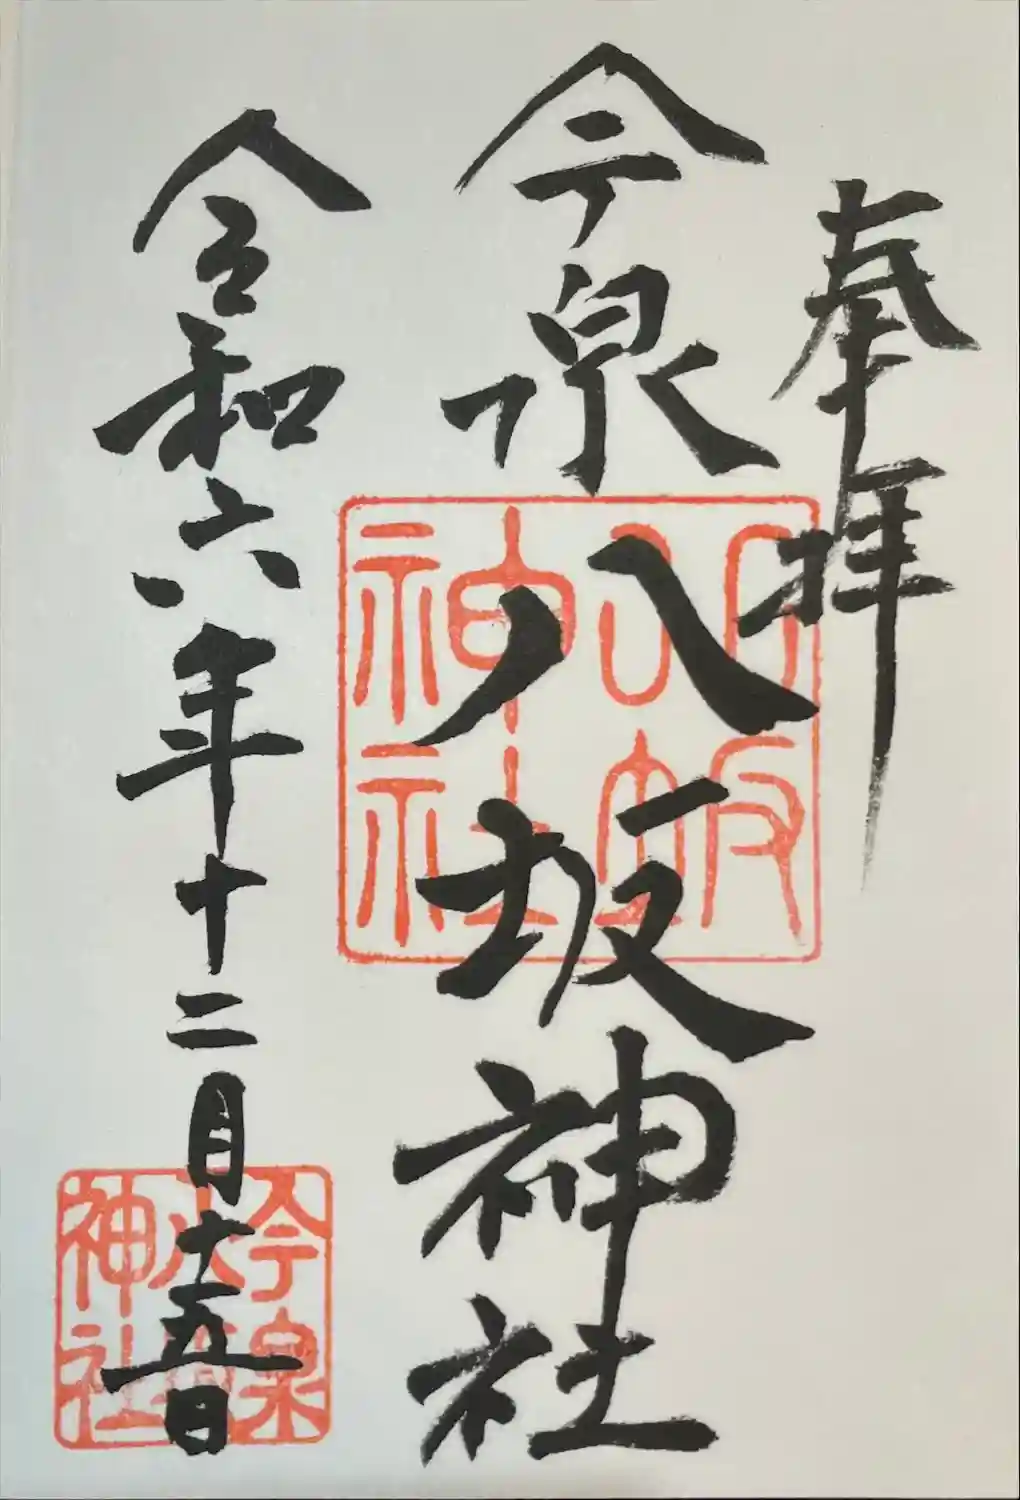 奉拝
今泉八坂神社
令和六年十二月十五日
神社
今泉
神社